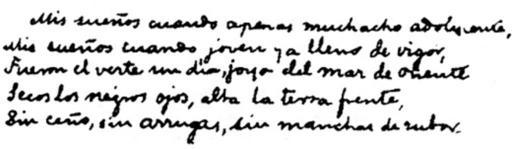 Mis sueños cuando apenas muchacho adolescente,
Mis sueños cuando joven ya lleno de vigor,
Fueron el verte un dia, joya del mar de oriente
Secos los negros ojos, alta la tersa frente,
Sin ceño, sin arrugas, sin manchas de rubor.